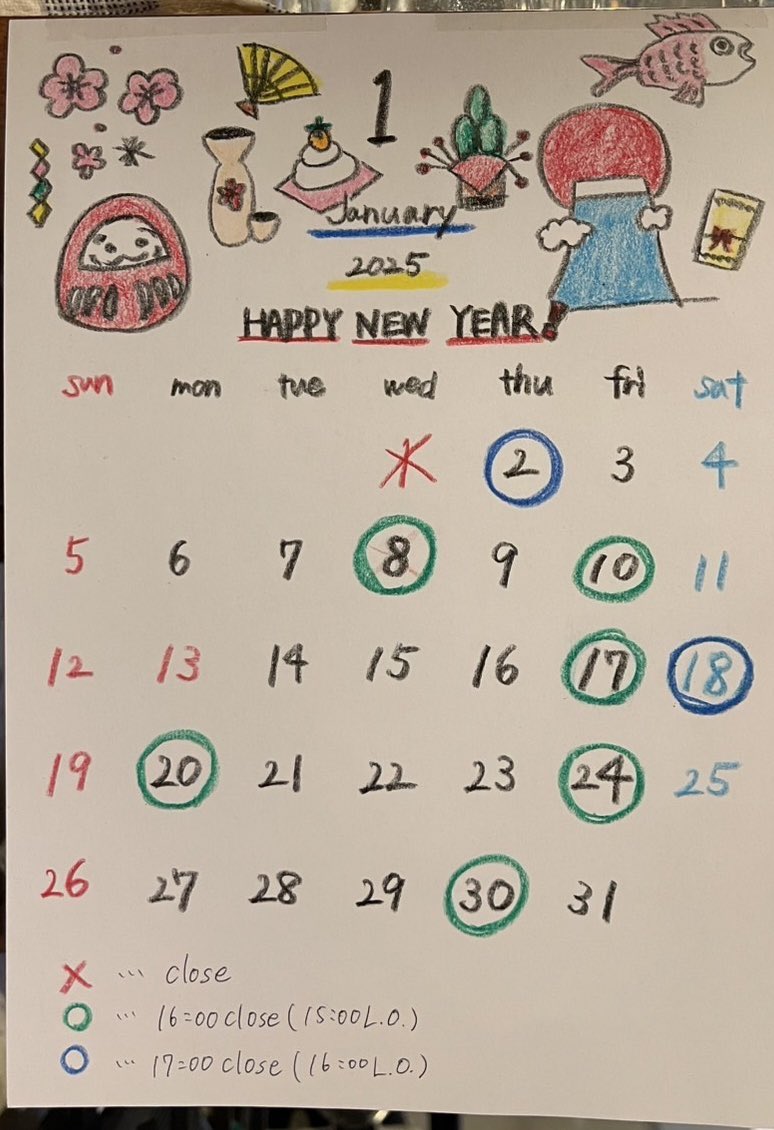 1
January
2025
HAPPY NEW YEAR!
sun mon tue wed thu fri sat
2 3 4
5 6 7 8 9 10 11
12 13 14 15 16 17 18
19 20 21 22 23 24 25
26 27 28 29 30 31
× … close
○ … 16:00 close (15:00 L.O.)
○ … 17:00 close (16:00 L.O.)